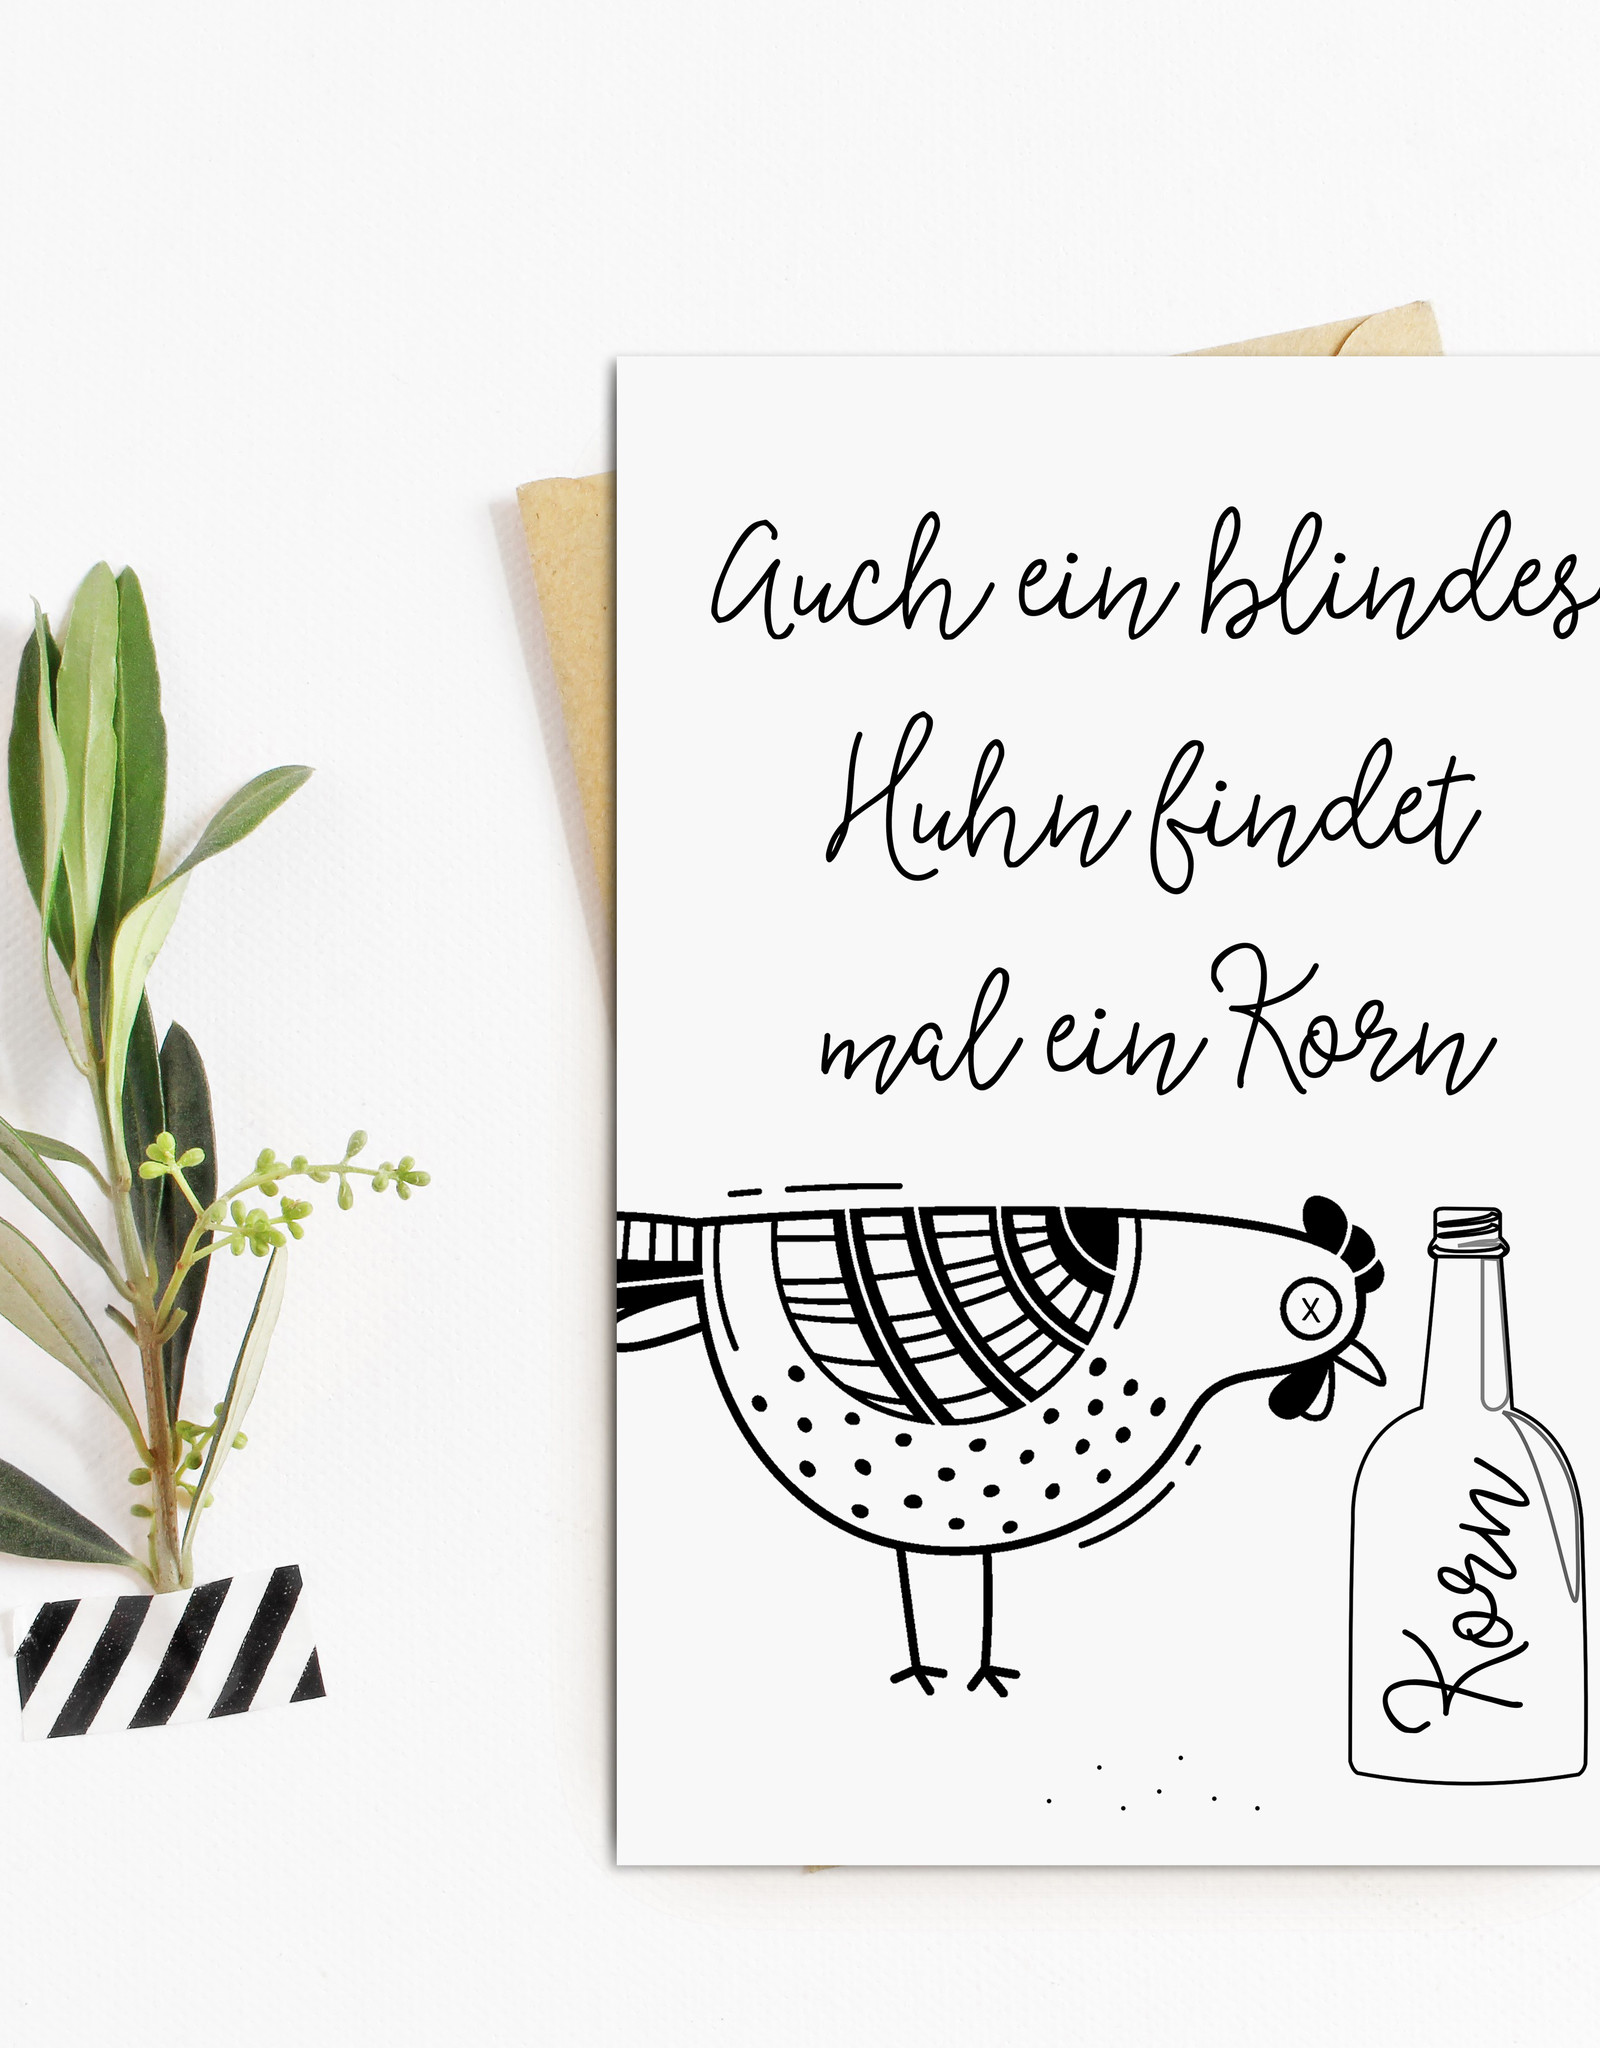 Auch ein blindes
Huhn findet
mal ein Korn
x
Korn